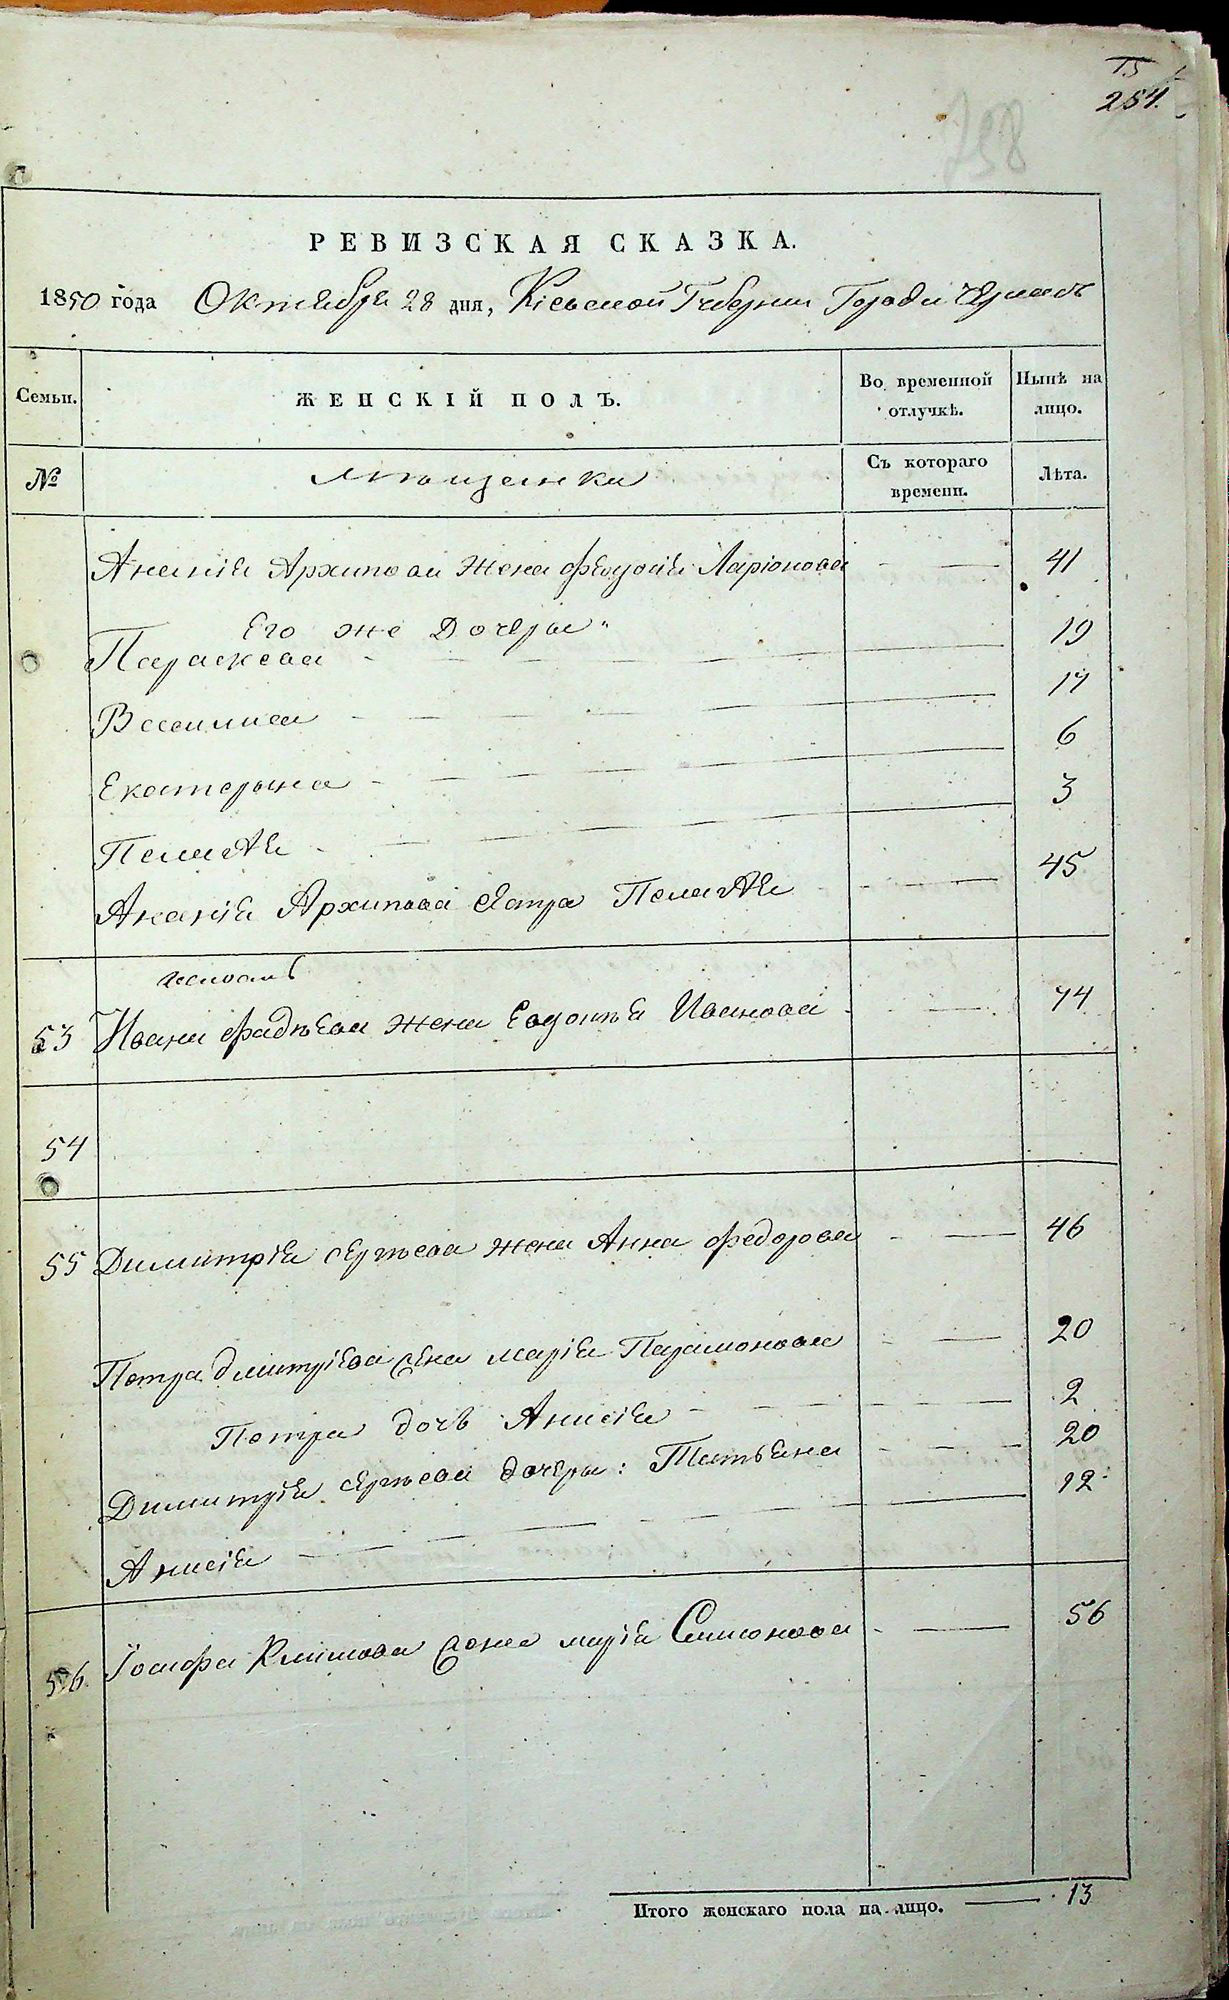 15
254.
798
РЕВИЗСКАЯ СКАЗКА.
1850 года Октября 28 дня, Кіевской Губерніи Города
Семьи. ЖЕНСКІЙ ПОЛЪ. Во временной отлучкѣ. Нынѣ на лицо.
№ Мѣщанки Съ котораго времени. Лѣта.
Ананія Архипова жена Ларіонова — 41
Его же Дочери
Параскева — 19
Василиса — 17
Екатерина — 6
Пелагея — 3
Ананія Архипова сестра Пелагея — 45
53 Ивана Фадѣева жена Евдокія Иванова — 74
54
55 Димитрія Сергѣева жена Анна Федорова — 46
Петра Дмитріева жена Марія Парамонова — 20
Петра дочь Анисія — 2
Димитрія Сергѣева дочери: Татьяна — 20
Анисія — 12
56 Іосифа Климова жена Марія Симонова — 56
Итого женскаго пола на лицо. — 13